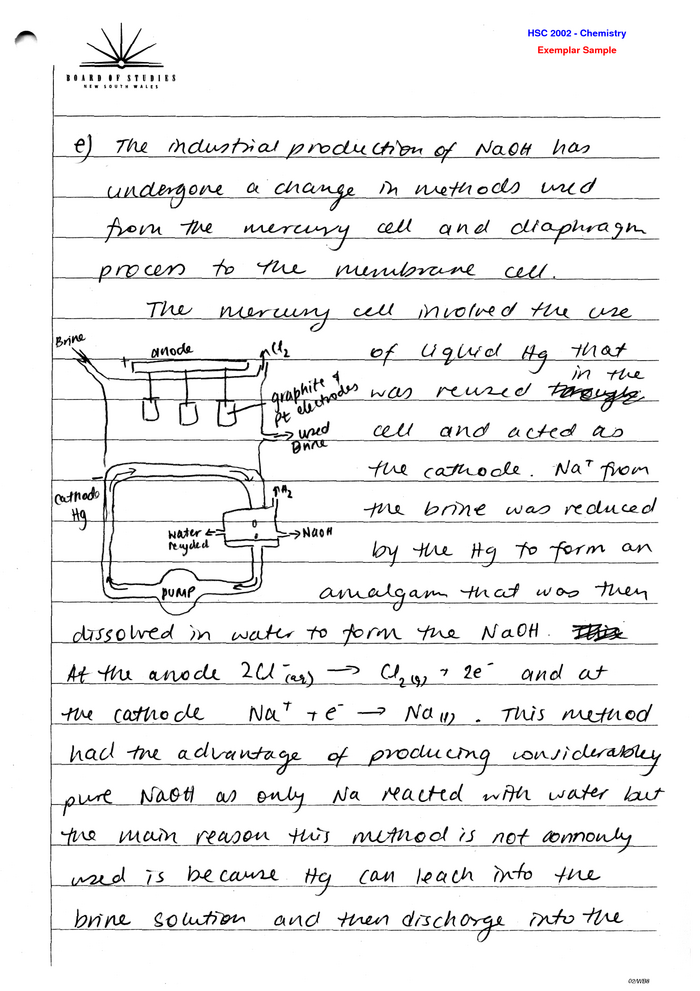 HSC 2002 - Chemistry
Exemplar Sample
BOARD OF STUDIES
NEW SOUTH WALES
e) The industrial production of NaOH has
undergone a change in methods used
from the mercury cell and diaphragm
process to the membrane cell.
The mercury cell involved the use
of liquid Hg that
in the
was reused
cell and acted as
the cathode. Na⁺ from
the brine was reduced
by the Hg to form an
amalgam that was then
Brine
anode
+
Cl₂
graphite &
Pt electrodes
used
Brine
−
cathode
Hg
H₂
water
recycled
NaOH
PUMP
dissolved in water to form the NaOH.
At the anode 2Cl⁻(aq) → Cl₂(g) + 2e⁻ and at
the cathode Na⁺ + e⁻ → Na(l). This method
had the advantage of producing considerabley
pure NaOH as only Na reacted with water but
the main reason this method is not commonly
used is because Hg can leach into the
brine solution and then discharge into the
02/WB8